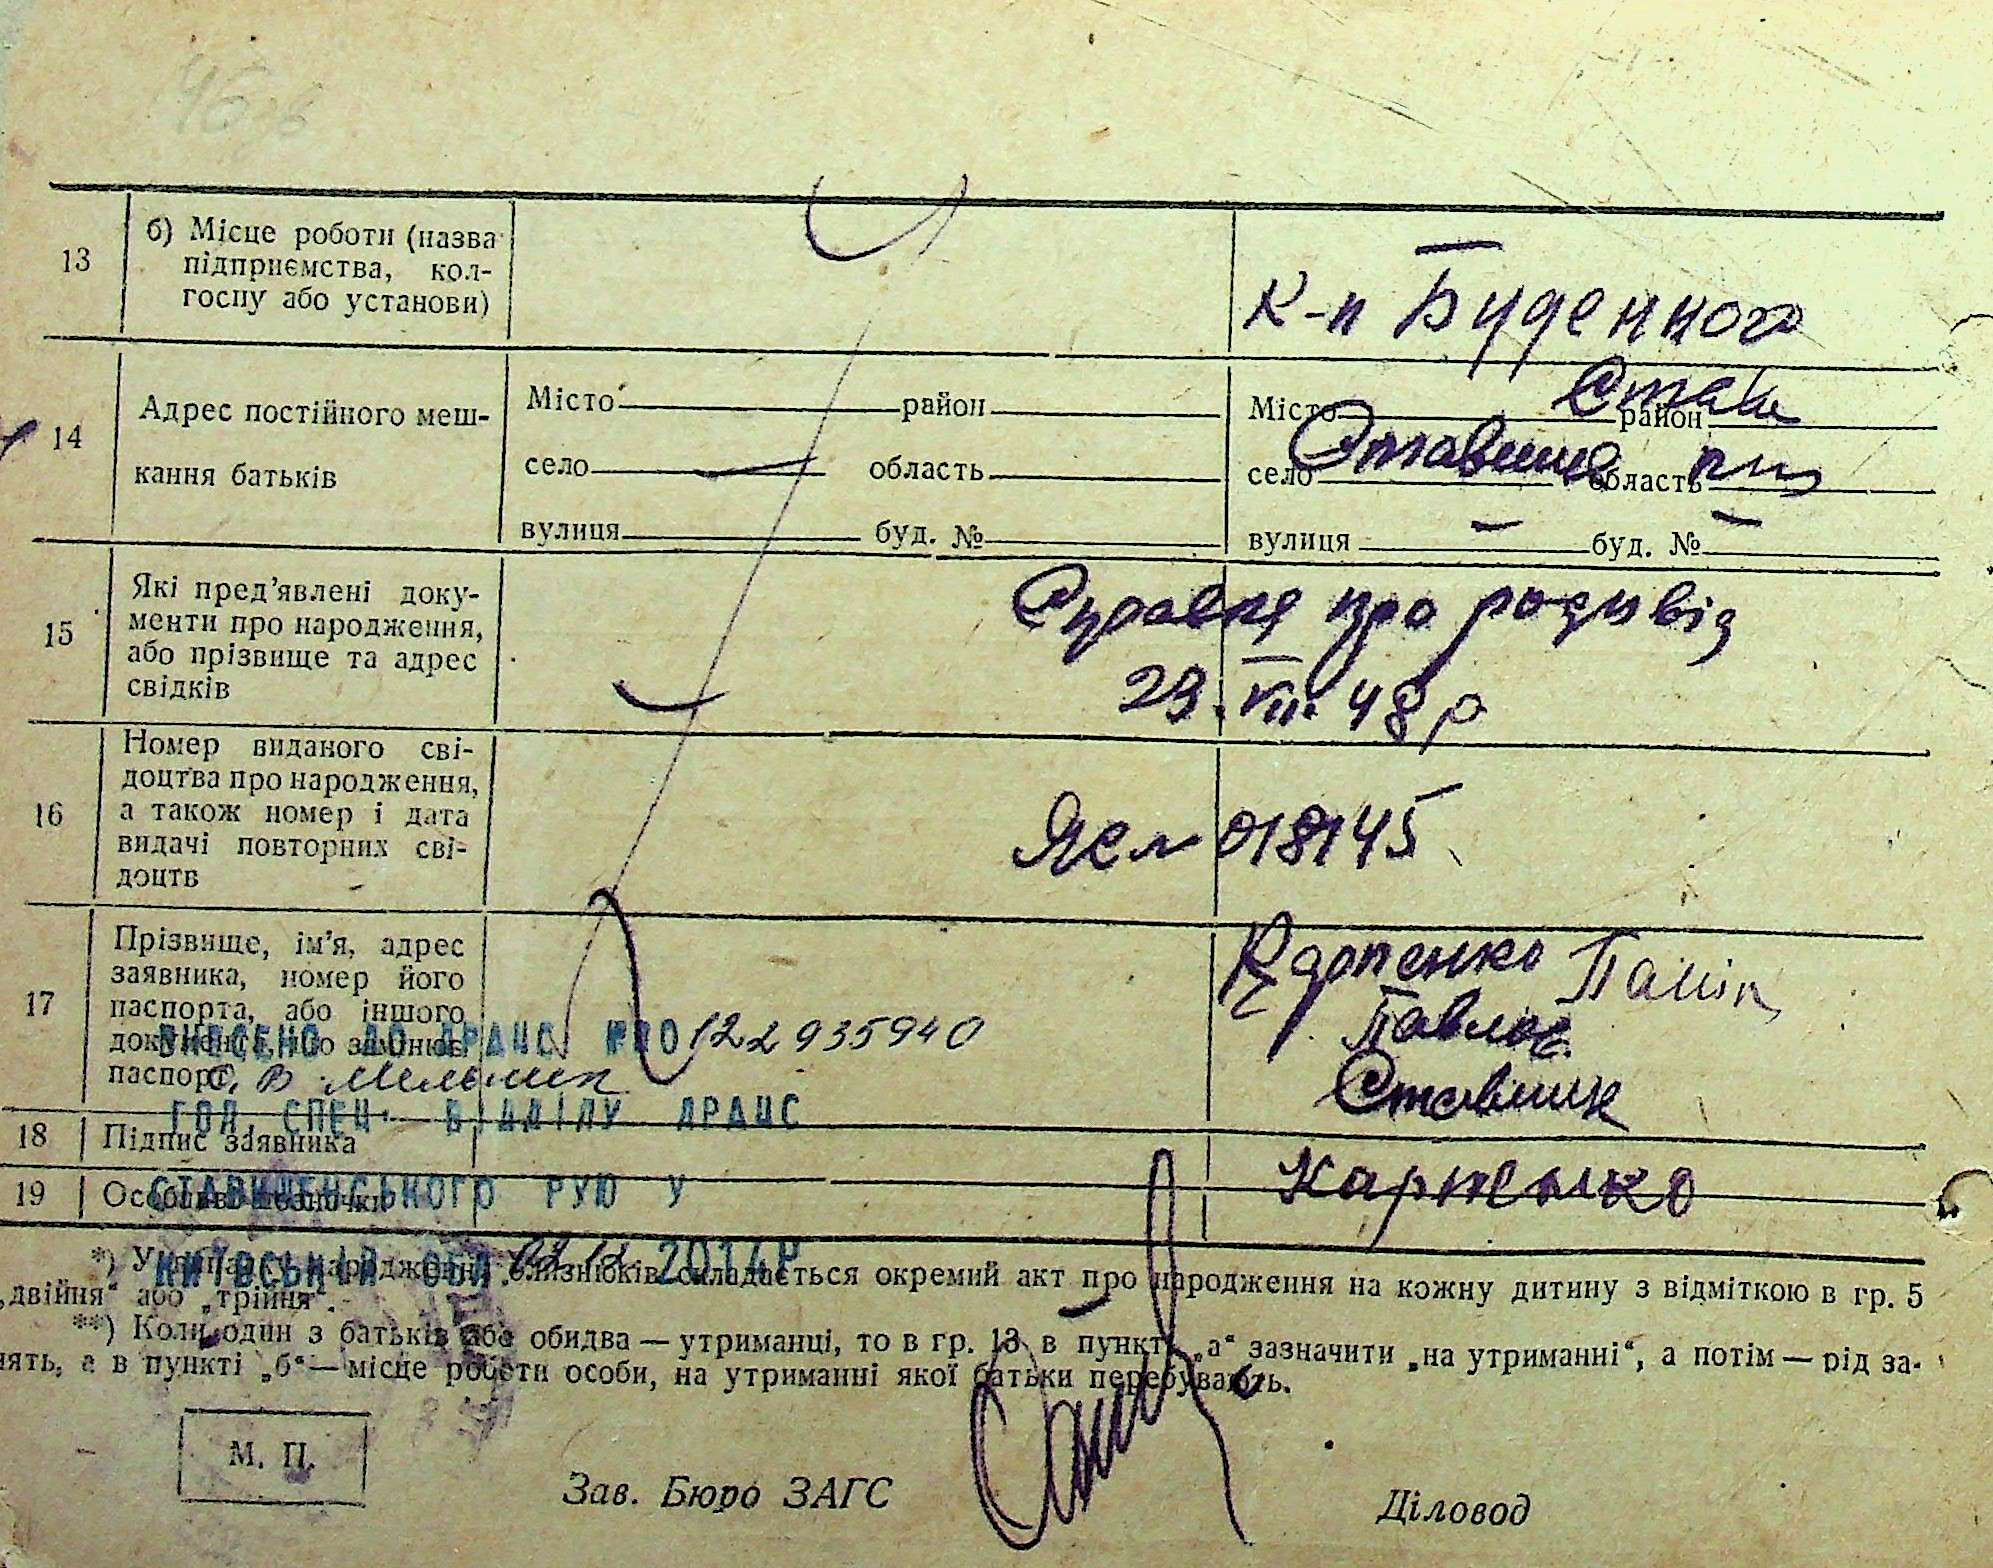 13
б) Місце роботи (назва
підприємства, кол-
госпу або установи)
к-п Буденного
14
Адрес постійного меш-
кання батьків
Місто район
село область
вулиця буд. №
Місто район Став
село Ставище область
вулиця — буд. № —
15
Які пред'явлені доку-
менти про народження,
або прізвище та адрес
свідків
Справка про родив від
29. VII. 48 р
16
Номер виданого сві-
доцтва про народження,
а також номер і дата
видачі повторних сві-
доцтв
018145
17
Прізвище, ім'я, адрес
заявника, номер його
паспорта, або іншого
документа, що замінює
паспорт
Карпенко
Павлов.
Ставище
ВНЕСЕНО ДО ДРАЦС №00122935940
С. В Мельник
ГОЛ. СПЕЦ. ВІДДІЛУ ДРАЦС
18
Підпис заявника
Карпенко
19
Особливі позначки
СТАВИЩЕНСЬКОГО РУЮ У
КИЇВСЬКІЙ ОБЛ. 2014Р
*) У випадку народження близнюків складається окремий акт про народження на кожну дитину з відміткою в гр. 5
„двійня“ або „трійня“.
**) Коли один з батьків або обидва — утриманці, то в гр. 13 в пункті „а“ зазначити „на утриманні“, а потім — рід за-
нять, а в пункті „б“ — місце роботи особи, на утриманні якої батьки перебувають.
М. П.
Зав. Бюро ЗАГС
Діловод